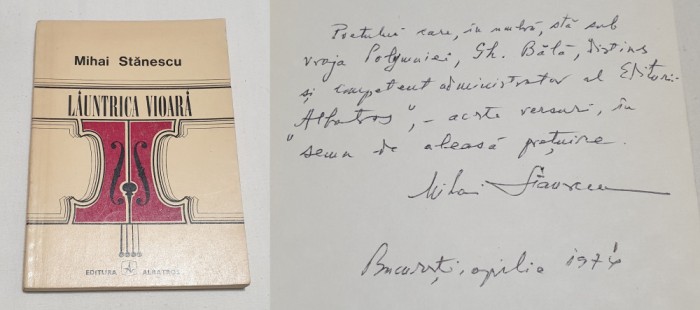 Mihai Stănescu
LĂUNTRICA VIOARĂ
EDITURA ALBATROS
Poetului care, în umbră, stă sub
vraja Polymniei, Gh. Bălă, distins
și competent administrator al Editurii
Albatros", – aceste versuri, în
"semn de aleasă prețuire.
Mihai Stănescu
București, aprilie 1974